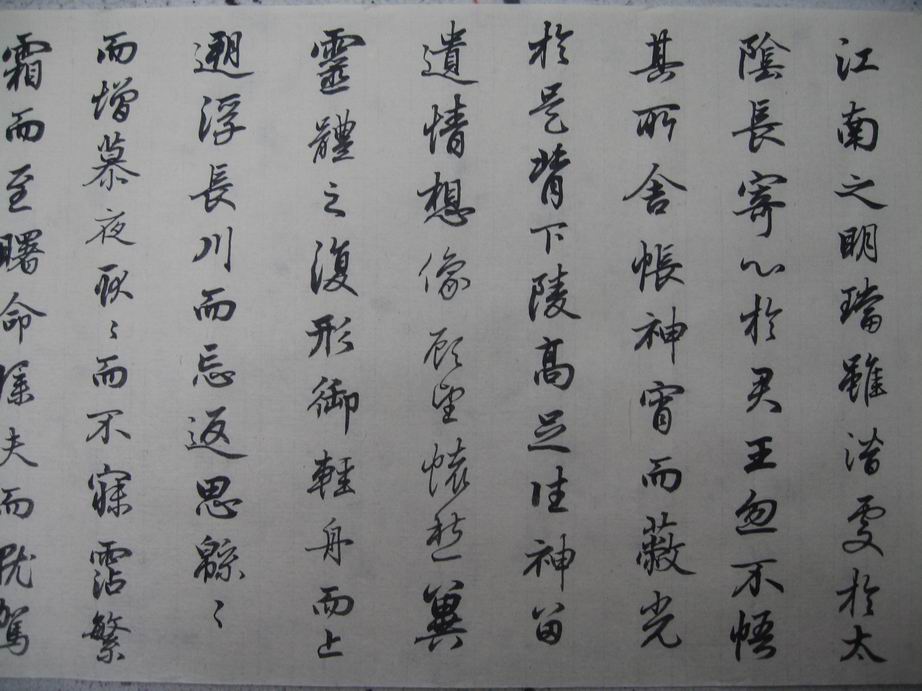 江南之明璫雖潛處於太
陰長寄心於君王忽不悟
其所舍悵神宵而蔽光
於是背下陵高足往神留
遺情想像顧望懷愁冀
靈體之復形御輕舟而上
遡浮長川而忘返思緜〻
而增慕夜耿〻而不寐霑繁
霜而至曙命僕夫而就駕